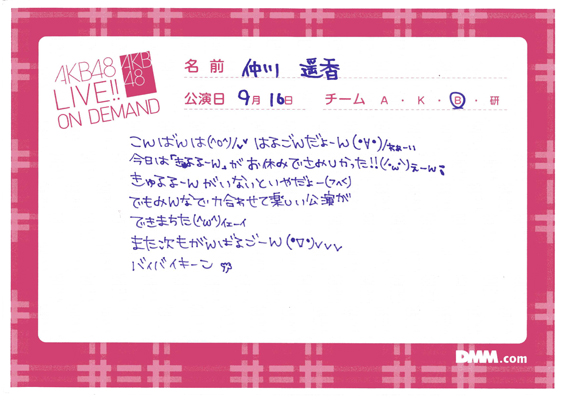 AKB48
LIVE!!
ON DEMAND
AKB
48
名前 仲川 遥香
公演日 9月16日 チーム A・K・B・研
こんばんは(^o^)/ はるごんだよーん(°∀°)/たぁーい
今日は「きゅるるーん」がお休みでさみしかった!!(´・ω・`)えーん
きゅるるーんがいないといやだよー(>^<)
でもみんなで力合わせて楽しい公演が
できまちた(^ω^)イェーイ
また次もがんばるごーん(°∇°)vvv
バイバイキーン
DMM.com